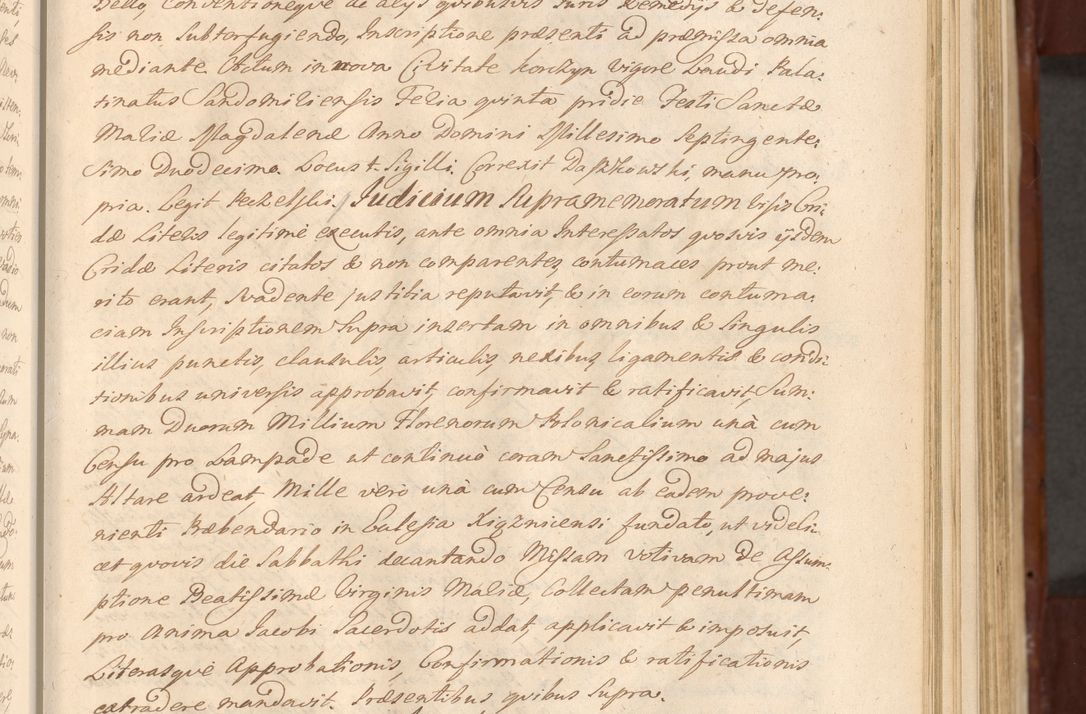 Bello, Conventioneqve de alijs qvibusvis Juris Remedijs & defen:
sis non Subterfugiendo, Inscriptione præsenti ad præmissa omnia
mediante. Actum in nova Civitate Korczyn vigore Laudi Pala:
tinatus Sandomiliensis Feria qvinta pridie Festi Sanctæ
Mariæ Magdalenæ Anno Domini Millesimo Septingente:
simo Duodecimo. Locus + Sigilli. Correxit Daszkowski, manu pro:
pria. Legit Pełzelski. Judicium Supramemoratum visis Cri:
dæ Literis legitimè executis, ante omnia Interessatos qvosvis ijsdem
Cridæ Literis citatos & non comparentes, contumaces prout me:
rito erant, svadente justitia reputavit, & in eorum contuma:
ciam Inscriptionem Supra insertam in omnibus & Singulis
illius punctis, clausulis, articulis, nexibus, ligamentis & condi:
tionibus universis approbavit, confirmavit & ratificavit, Sum:
mam Duorum Millium Florenorum Polonicalium unà cum
Censu pro Lampade ut continuò coram Sanctissimo ad majus
Altare ardeat, Mille verò unà cum Censu ab eadem prove:
nienti Præbendario in Eclesia Xigznicensi fundato, ut videli:
cet qvovis die Sabbathi decantando Missam votivam de Assum:
ptione Beatissimæ Virginis Mariæ, Collectam penultimam
pro Anima Jacobi Sacerdotis addat, applicavit & imposuit,
Literasqvè Approbationis, Confirmationis & ratificationis
extradere mandavit. Præsentibus qvibus Supra.